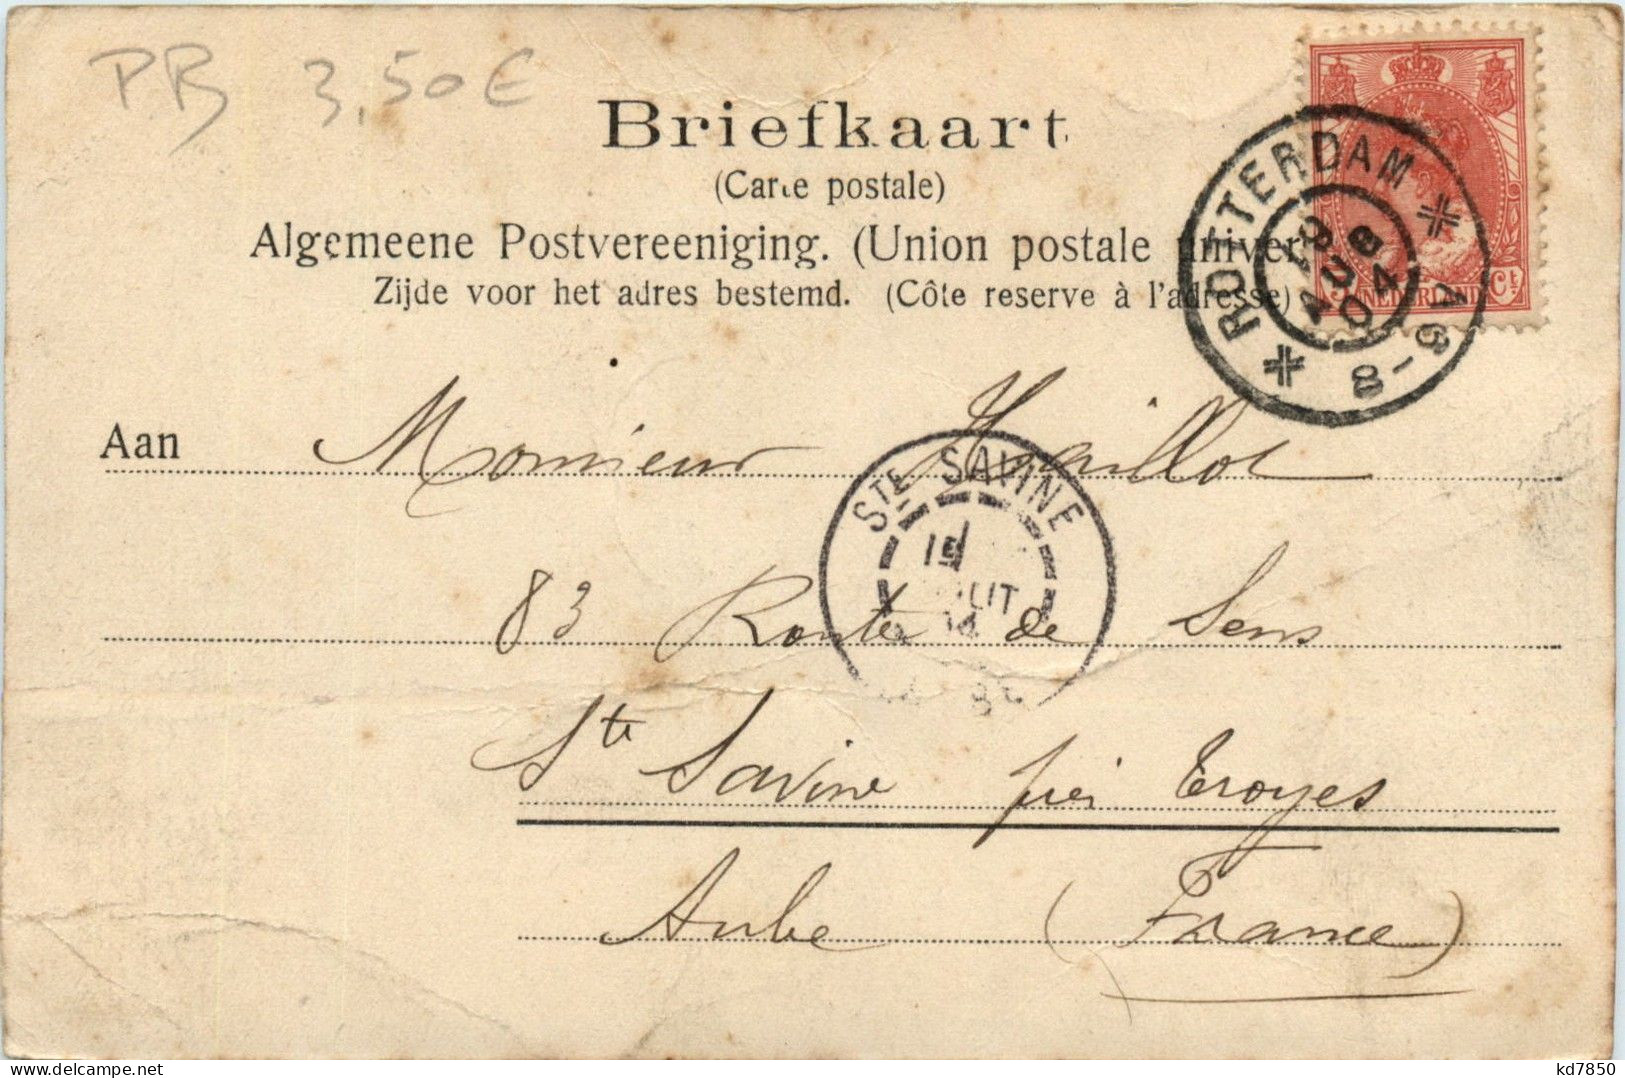 PB 3,50€
Briefkaart
(Carte postale)
Algemeene Postvereeniging. (Union postale univer
Zijde voor het adres bestemd. (Côte reserve à l'adresse)
NEDERLAND
Ct
ROTTERDAM
7-8
8
04
Aan Monsieur Maillot
STE SAVINE
83 Route de Sens
Ste Savine près Troyes
Aube (France)
kd7850